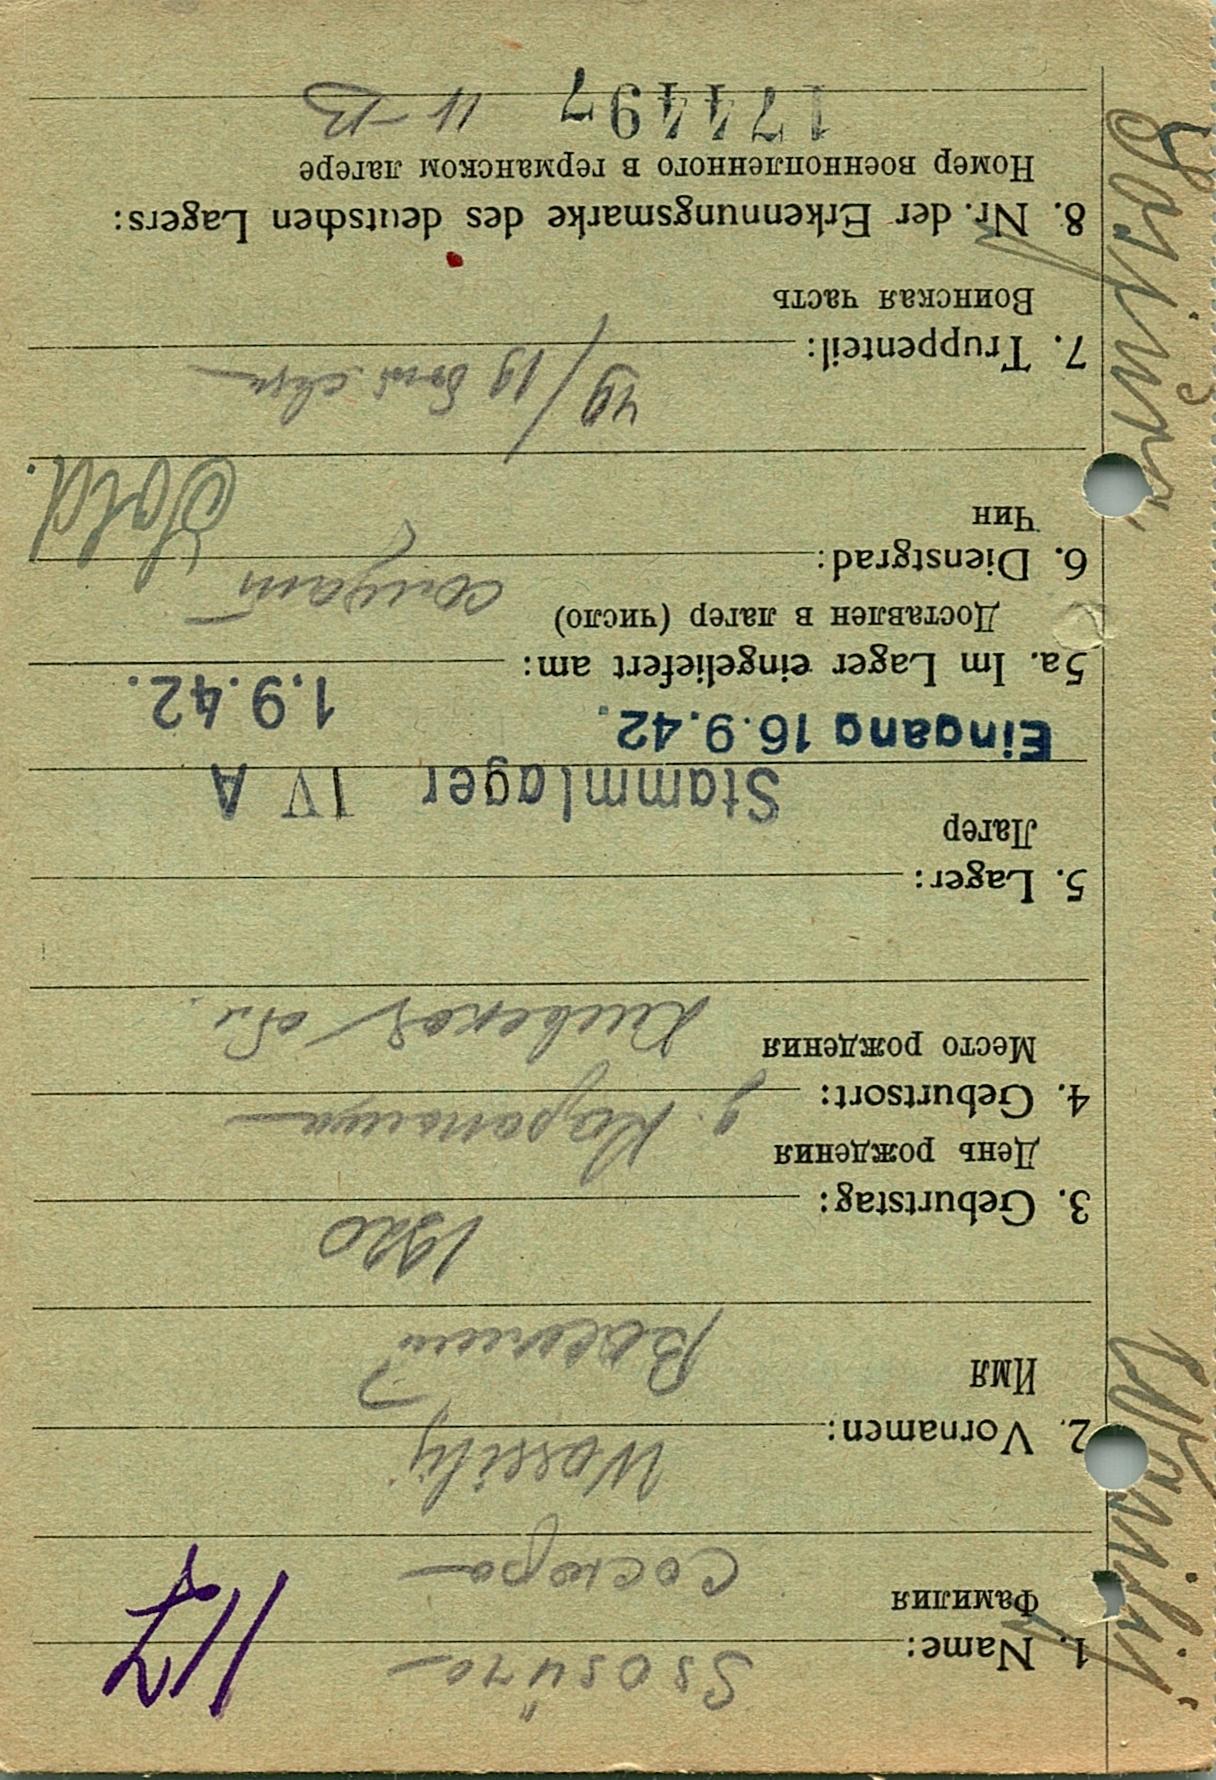 Ssosüra
1. Name:
Фамилия
Сосюра
Wassilij
2. Vornamen:
Имя
Василий
1920
3. Geburtstag:
День рождения
4. Geburtsort:
Место рождения
Киевской обл.
5. Lager:
Лагер
Stammlager IV A
Eingang 16.9.42.
1.9.42.
5a. Im Lager eingeliefert am:
Доставлен в лагер (число)
солдат
Sold.
6. Dienstgrad:
Чин
49/19
7. Truppenteil:
Воинская часть
8. Nr. der Erkennungsmarke des deutschen Lagers:
Номер военнопленного в германском лагере
174497 IV-B
Wasilij